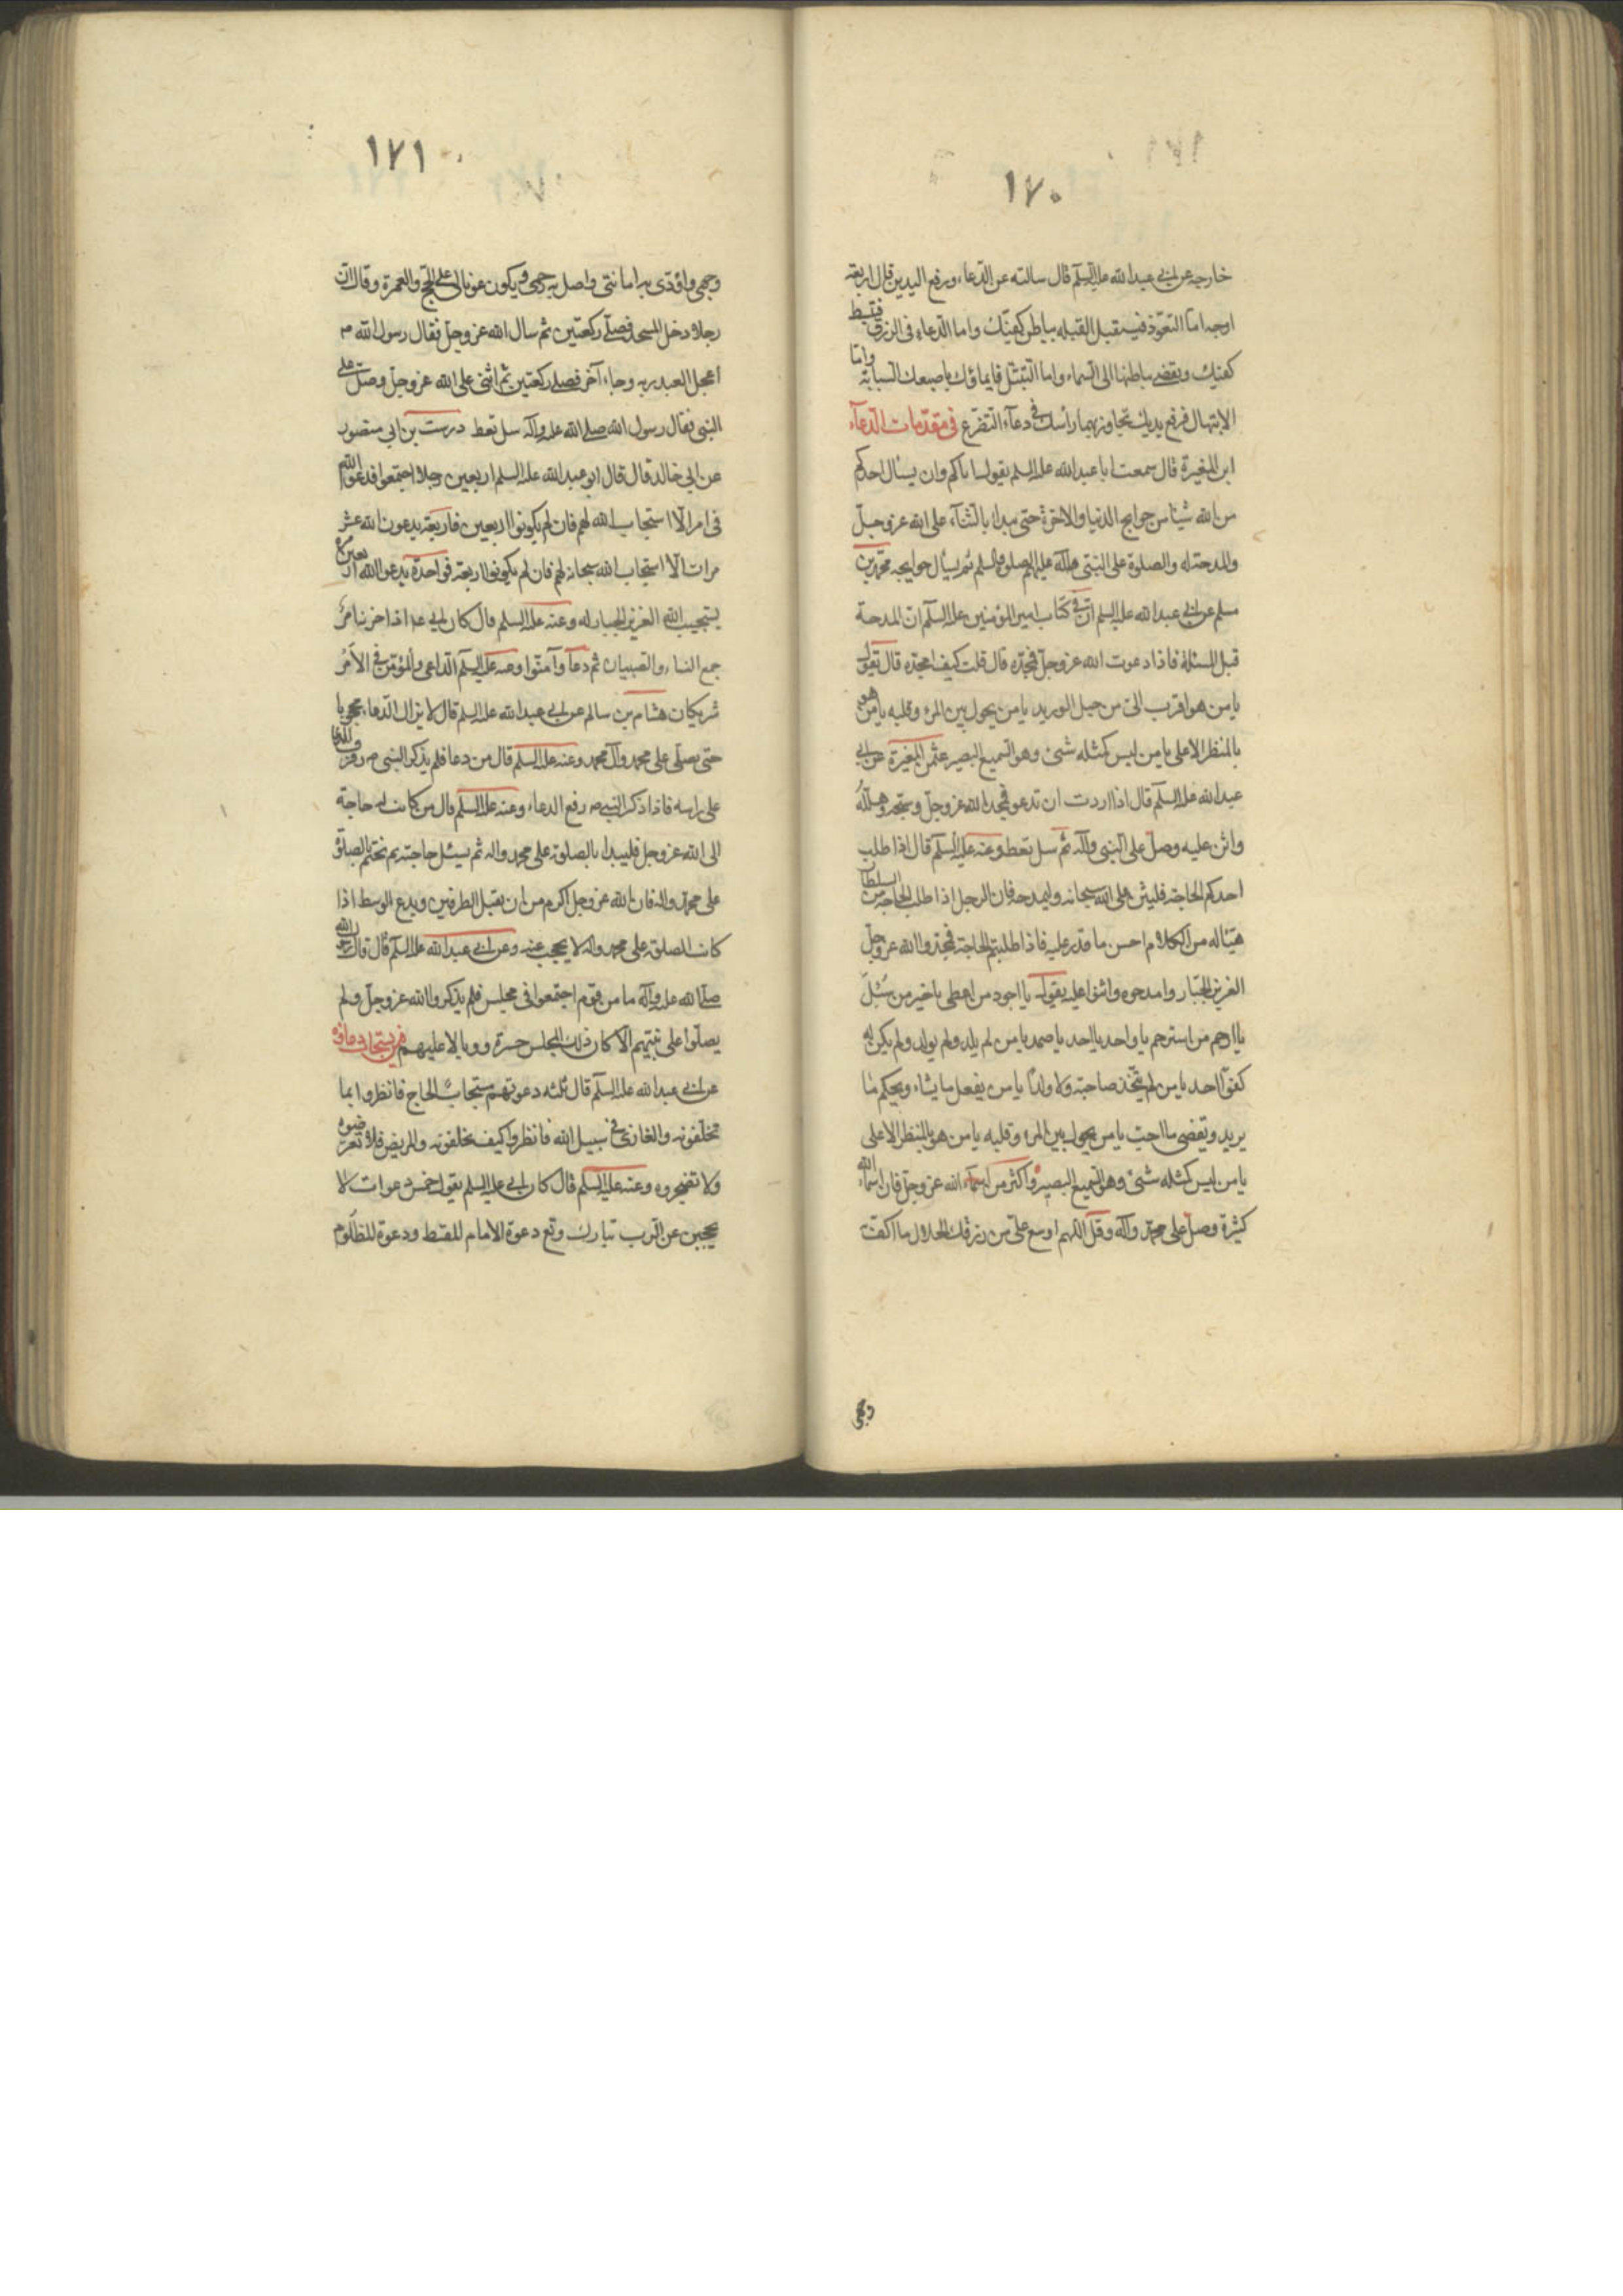 ١٧٠
خارجه عن ابى عبد الله عليه السلم قال سالته عن الدعاء ورفع اليدين قال اربعة
اوجه اما التعوذ فتستقبل القبله بباطن كفيك واما الدعاء فى الرزق فتبسط
كفيك وتفضى بباطنها الى السماء واما التبتل فايماؤك باصبعك السبابة واما
الابتهال فرفع يديك تجاوز بهما رأسك فى دعاء التضرع فى مقدمات الدعآء
ابن المغيرة قال سمعت ابا عبد الله عليه السلم يقول اياكم وان يسئال احدكم
من الله شيئا من حوايج الدنيا والاخرة حتى يبدا بالثنآء على الله عز وجل
والمدحة له والصلوة على النبى وآله عليهم الصلوة والسلم ثم يسال حوايجه محمد بن
مسلم عن ابى عبد الله عليه السلم ان فى كتاب امير المؤمنين عليه السلم ان المدحة
قبل المسئلة فاذا دعوت الله عز وجل فمجده قال قلت كيف امجده قال تقول
يا من هو اقرب الى من حبل الوريد يا من يحول بين المرء وقلبه يا من هو
بالمنظر الاعلى يا من ليس كمثله شئ وهو السميع البصير عثمن المغيرة عن ابى
عبد الله عليه السلم قال اذا اردت ان تدعو فمجد الله عز وجل وسبحه وهلله
واثن عليه وصل على النبى وآله ثم سل تعط وعنه عليه السلم قال اذا طلب
احدكم الحاجة فليثن على الله سبحانه وليمدحه فان الرجل اذا طلب الحاجة من السلطان
هيئا له من الكلام احسن ما قدر عليه فاذا طلبتم الحاجة فمجدوا الله عز وجل
العزيز الجبار وامدحوه واثنوا عليه يقول يا اجود من اعطى يا خير من سئل
يا ارحم من استرحم يا واحد يا احد يا صمد يا من لم يلد ولم يولد ولم يكن له
كفوا احد يا من لم يتخذ صاحبة ولا ولدا يا من يفعل ما يشاء ويحكم ما
يريد ويقضى ما احب يا من يحول بين المرء وقلبه يا من هو بالمنظر الاعلى
يا من ليس كمثله شئ وهو السميع البصير واكثر من اسماء الله عز وجل فان اسماء الله
كثيرة وصل على محمد وآله وقل اللهم اوسع على من رزقك الحلال ما اكف به
وجهى
١٧١
وجهى واؤدى به امانتى واصل به رحمى ويكون عونا لى على الحج والعمرة وقال ان
رجلا دخل المسجد فصلى ركعتين ثم سال الله عز وجل فقال رسول الله ص
اعجل العبد ربه وجاء آخر فصلى ركعتين ثم اثنى على الله عز وجل وصلى على
النبى فقال رسول الله صلى الله عليه وآله سل تعط درست بن ابى منصور
عن ابى خالد قال قال ابو عبد الله عليه السلم اربعين رجلا اجتمعوا فدعوا الله
فى امر الا استجاب الله لهم فان لم يكونوا اربعين فاربعة يدعون الله عشر
مرات الا استجاب الله سبحانه لهم فان لم يكونوا اربعة فواحدة يدعو الله اربعين مرة
يستجيب الله العزيز الجبار له وعنه عليه السلم قال كان ابى عه اذا حزننا امر
جمع النساء والصبيان ثم دعآ وآمنوا وعنه عليه السلم الداعى والمؤمن فى الاجر
شريكان هشام بن سالم عن ابى عبد الله عليه السلم قال لا يزال الدعاء محجوبا
حتى يصلى على محمد وآل محمد وعنه عليه السلم قال من دعا فلم يذكر النبى ص رفرف الدعا
على راسه فاذا ذكر النبى ص رفع الدعاء وعنه عليه السلم قال من كانت له حاجة
الى الله عز وجل فليبدا بالصلوة على محمد واله ثم يسئل حاجته ثم نختم بالصلوة
على محمد واله فان الله عز وجل اكرم من ان يقبل الطرفين ويدع الوسط اذا
كانت الصلوة على محمد واله لا يحجب عنه وعن ابى عبد الله عليه السلم قال قال رسول الله
صلى الله عليه وآله ما من قوم اجتمعوا فى مجلس فلم يذكروا الله عز وجل ولم
يصلوا على نبيهم الا كان ذلك المجلس حسرة ووبالا عليهم فمن يستجاب دعاؤه
عن ابى عبد الله عليه السلم قال ثلثه دعوتهم مستجابة الحاج فانظروا بما
تخلفونه والغازى فى سبيل الله فانظروا كيف تخلفونه والمريض فلا تعرضوه
ولا تضجروه وعنه عليه السلم قال كان ابى عليه السلم يقول خمس دعوات لا
يحجبن عن الرب تبارك وتع دعوة الامام المقسط ودعوة المظلوم